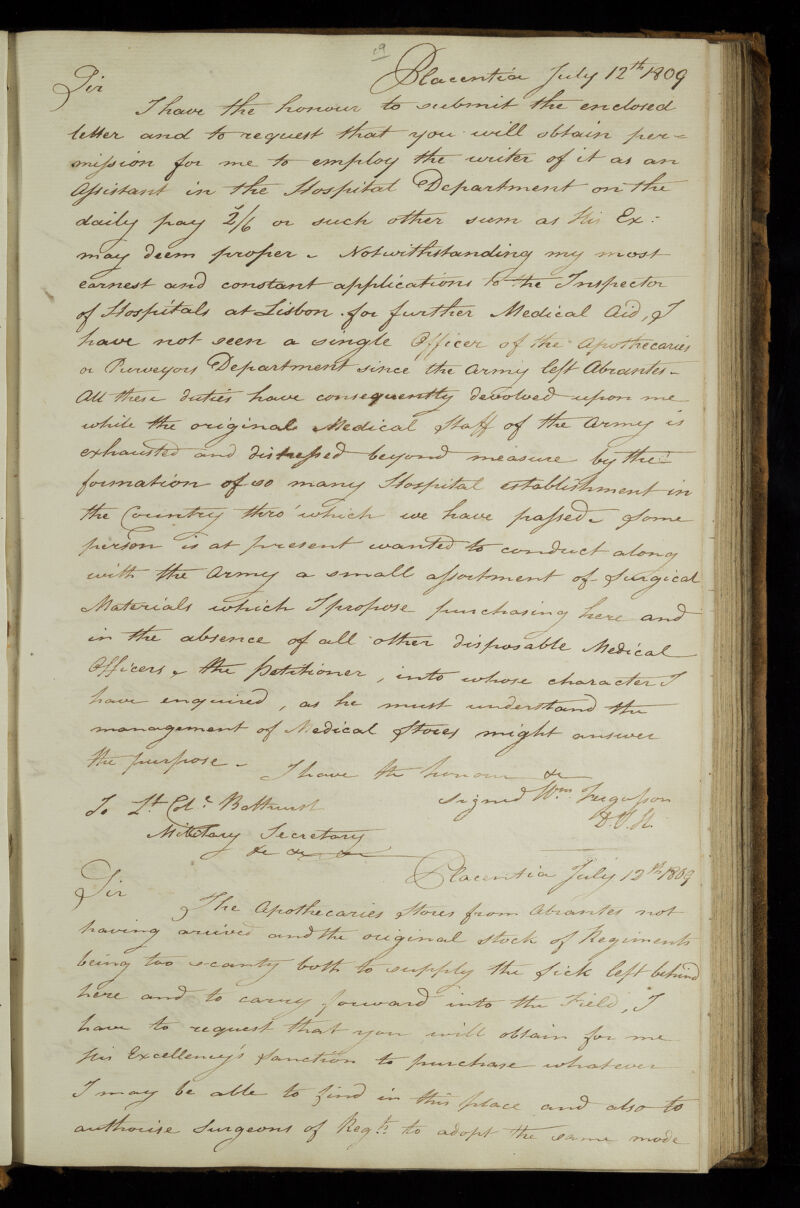 19
Placentia July 12th 1809
Sir
I have the honour to submit the enclosed
letter and to request that you will obtain per=
mission for me to employ the writer of it as an
Assistant in the Hospital Department on the
daily pay 2/6 or such other sum as His Ex:
may deem proper. Notwithstanding my most
earnest and constant applications to the Inspector
of Hospitals at Lisbon for further Medical Aid, I
have not seen a single Officer of the Apothecaries
or Purveyors Department since the Army left Abrantes.
All these duties have consequently devolved upon me
while the original Medical Staff of the Army is
exhausted and distressed beyond measure by the
formation of so many Hospital establishment in
the Country thro' which we have passed. Some
person is at present wanted to conduct along
with the Army a small assortment of Surgical
Materials which I propose purchasing here and
in the absence of all other disposable Medical
Officers, the petitioner, into whose character I
have enquired, as he must understand the
management of Medical Stores might answer
the purpose. I have the honour &c
Signed Wm Fergusson
D.I.H.
To Lt. Col. Bathurst
Military Secretary
&c &c &c
Placentia July 12th 1809
Sir
The Apothecaries Stores from Abrantes not
having arrived and the original stock of Regiments
being too scanty both to supply the sick left behind
here and to carry forward into the Field, I
have to request that you will obtain for me
His Excellency's Sanction to purchase whatever
I may be able to find in this place and also to
authorise Surgeons of Regts. to adopt the same mode